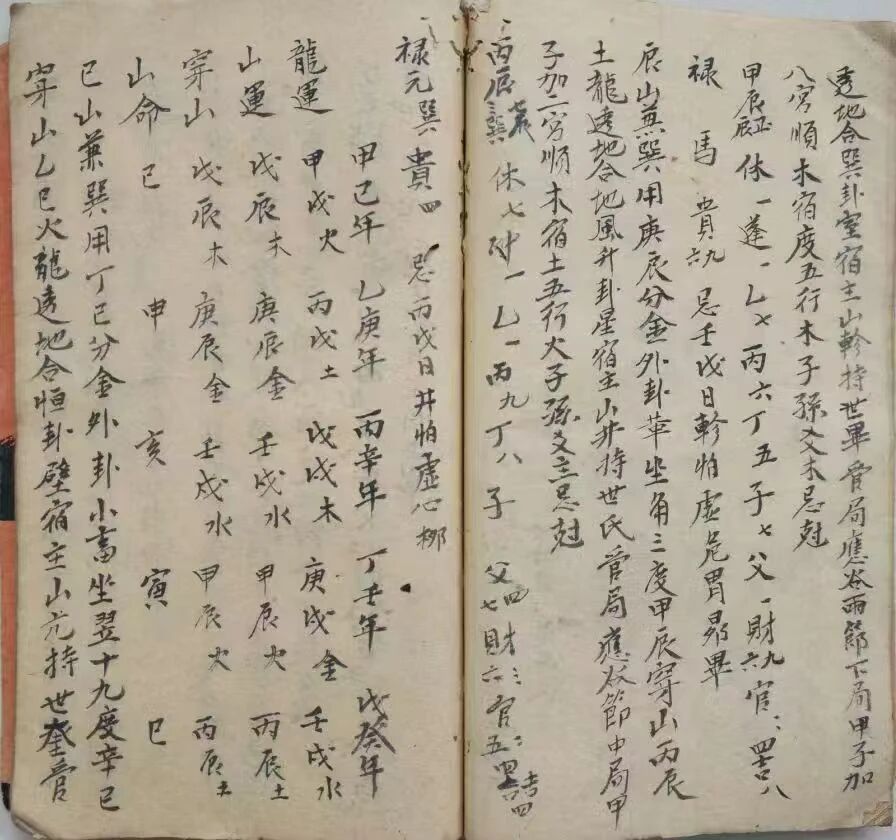 透地合巽卦室宿主山軫持世畢管局應谷雨節下局甲子加
八宮順木宿度五行木子孫爻木忌尅
甲辰 休一蓬一乙七丙六丁五子七父一財六九官二四吉八
祿 馬 貴六九 忌壬戌日軫怕虛危胃昴畢
辰山兼巽用庚辰分金外卦革坐角三度甲辰穿山丙辰
土龍透地合地風升卦星宿主山井持世氐管局應 節中局甲
子加二宮順木宿土五行火子孫爻主忌尅
丙辰 巽 休七 一乙一丙九丁八子 父四七財六三官五二 吉四
祿元巽貴四 忌丙戌日井怕虛心柳
甲己年 乙庚年 丙辛年 丁壬年 戊癸年
龍運 甲戌火 丙戌土 戊戌木 庚戌金 壬戌水
山運 戊辰木 庚辰金 壬戌水 甲辰火 丙辰土
穿山 戊辰木 庚辰金 壬戌水 甲辰火 丙辰土
山命 巳 申 亥 寅 巳
巳山兼巽用丁巳分金外卦小畜坐翌十九度辛巳
穿山乙巳火龍透地合恒卦壁宿主山亢持世奎管